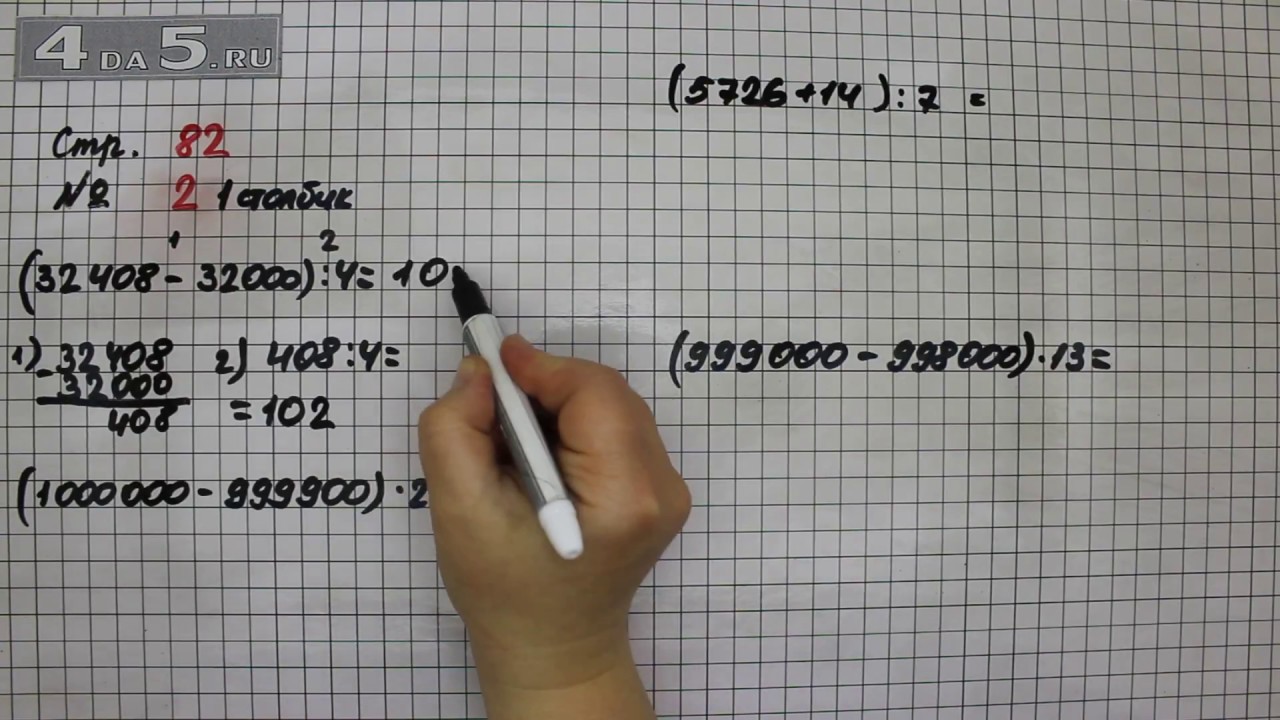 4DA5.RU
Стр. 82
№ 2 1 столбик
1 2
(32408 - 32000) : 4 = 10
1) - 32408
32000
408
2) 408 : 4 =
= 102
(1000000 - 999900) · 2
(5726 + 14) : 7 =
(999000 - 998000) · 13 =